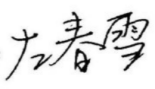 左春雪